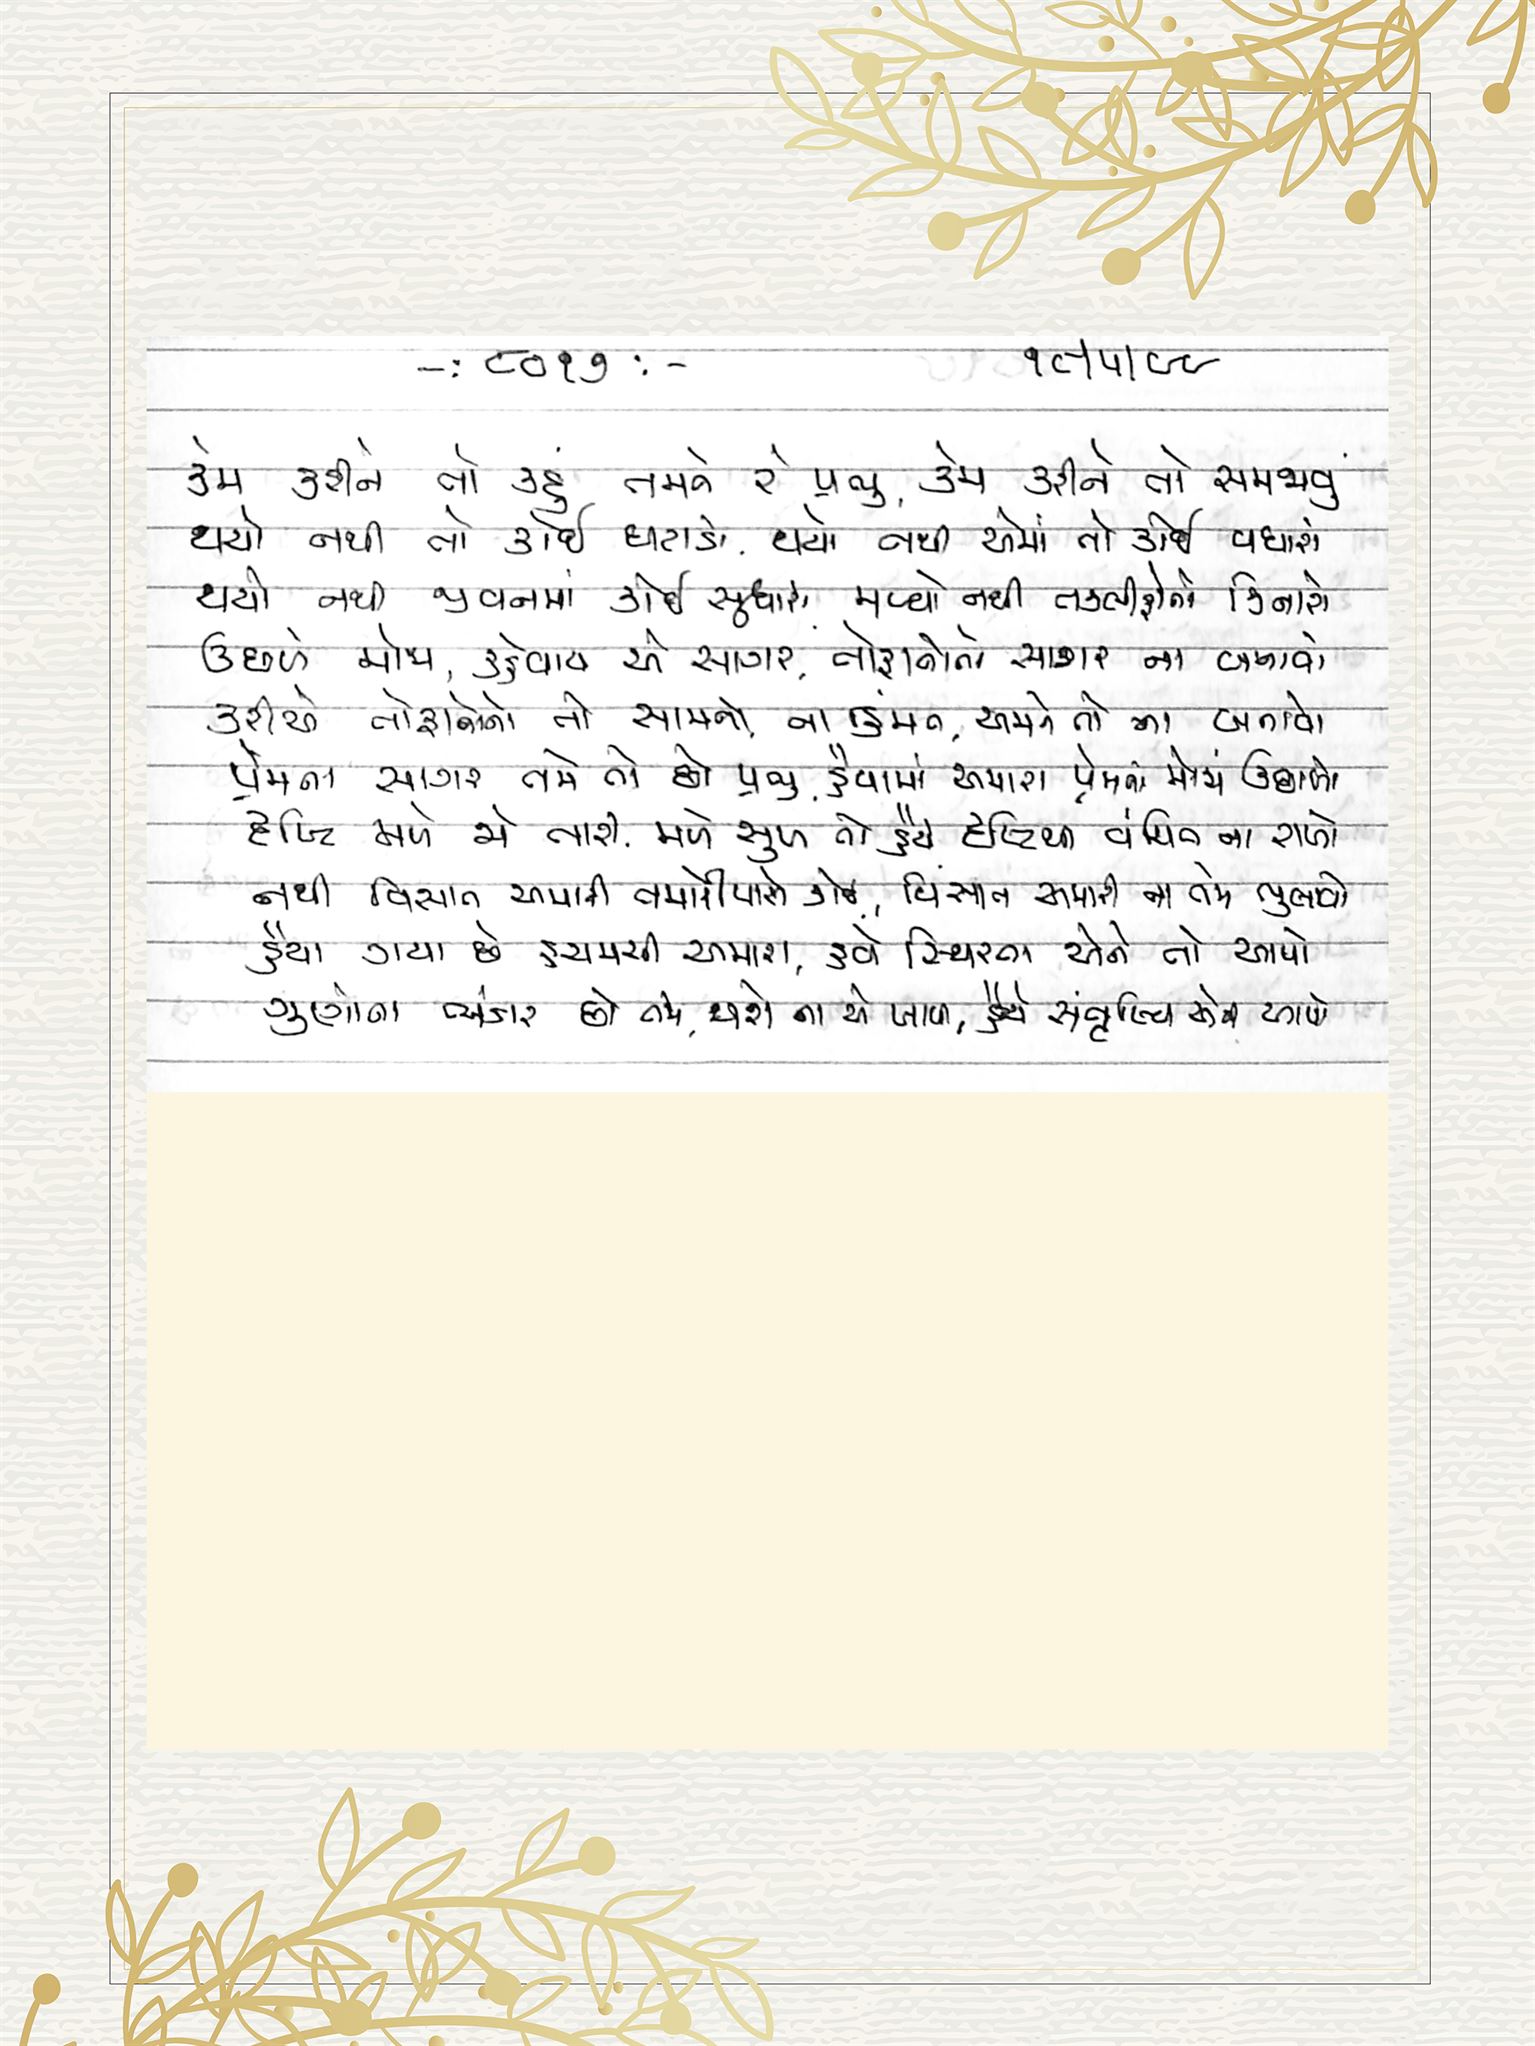 -: ૮૦૧૭ :- ૧૯/૫/૯૯
કેમ કરીને તો કહું તમને રે પ્રભુ, કેમ કરીને તો સમજાવું
થયો નથી તો કોઈ ઘટાડો, થયો નથી એમાં તો કોઈ વધારો
થયો નથી જીવનમાં કોઈ સુધારો, મળ્યો નથી તકલીફોનો કિનારો
ઉછળે મોજા, કહેવાય એ સાગર, તોફાનોનો સાગર ના બનાવો
કરીએ તોફાનોનો તો સામનો, ના હિંમત, અમને તો ના બનાવો
પ્રેમના સાગર તમે તો છો પ્રભુ, હૈયામાં અમારા પ્રેમનાં મોજાં ઉછાળો
દૃષ્ટિ મળે જો તારી, મળે સુખ તો હૈયે દૃષ્ટિથી વંચિત ના રાખો
નથી વિસાત અમારી તમારી પાસે કોઈ, વિસાત અમારી ના તમે ભુલાવો
હૈયા ગયા છે હચમચી અમારા, હવે સ્થિરતા એને તો આપો
ગુણોના ભંડાર છો તમે, થાશે ના એ ખાલી, હૈયે સંતૃપ્તિ એને આપો